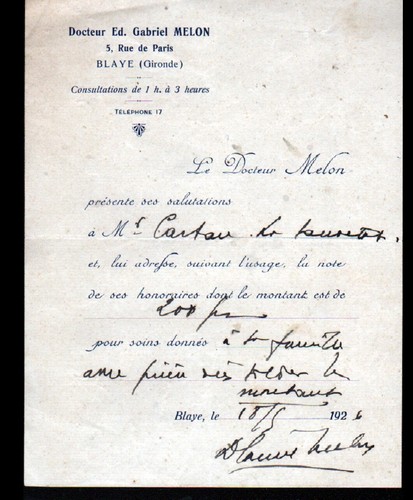 Docteur Ed. Gabriel MELON
5, Rue de Paris
BLAYE (Gironde)
Consultations de 1 h. à 3 heures
TÉLÉPHONE 17
Le Docteur Melon
présente ses salutations
à Mr
et, lui adresse, suivant l'usage, la note
de ses honoraires dont le montant est de
200 frs
pour soins donnés à sa famille
avec prière
montant
Blaye, le 18/5 1926